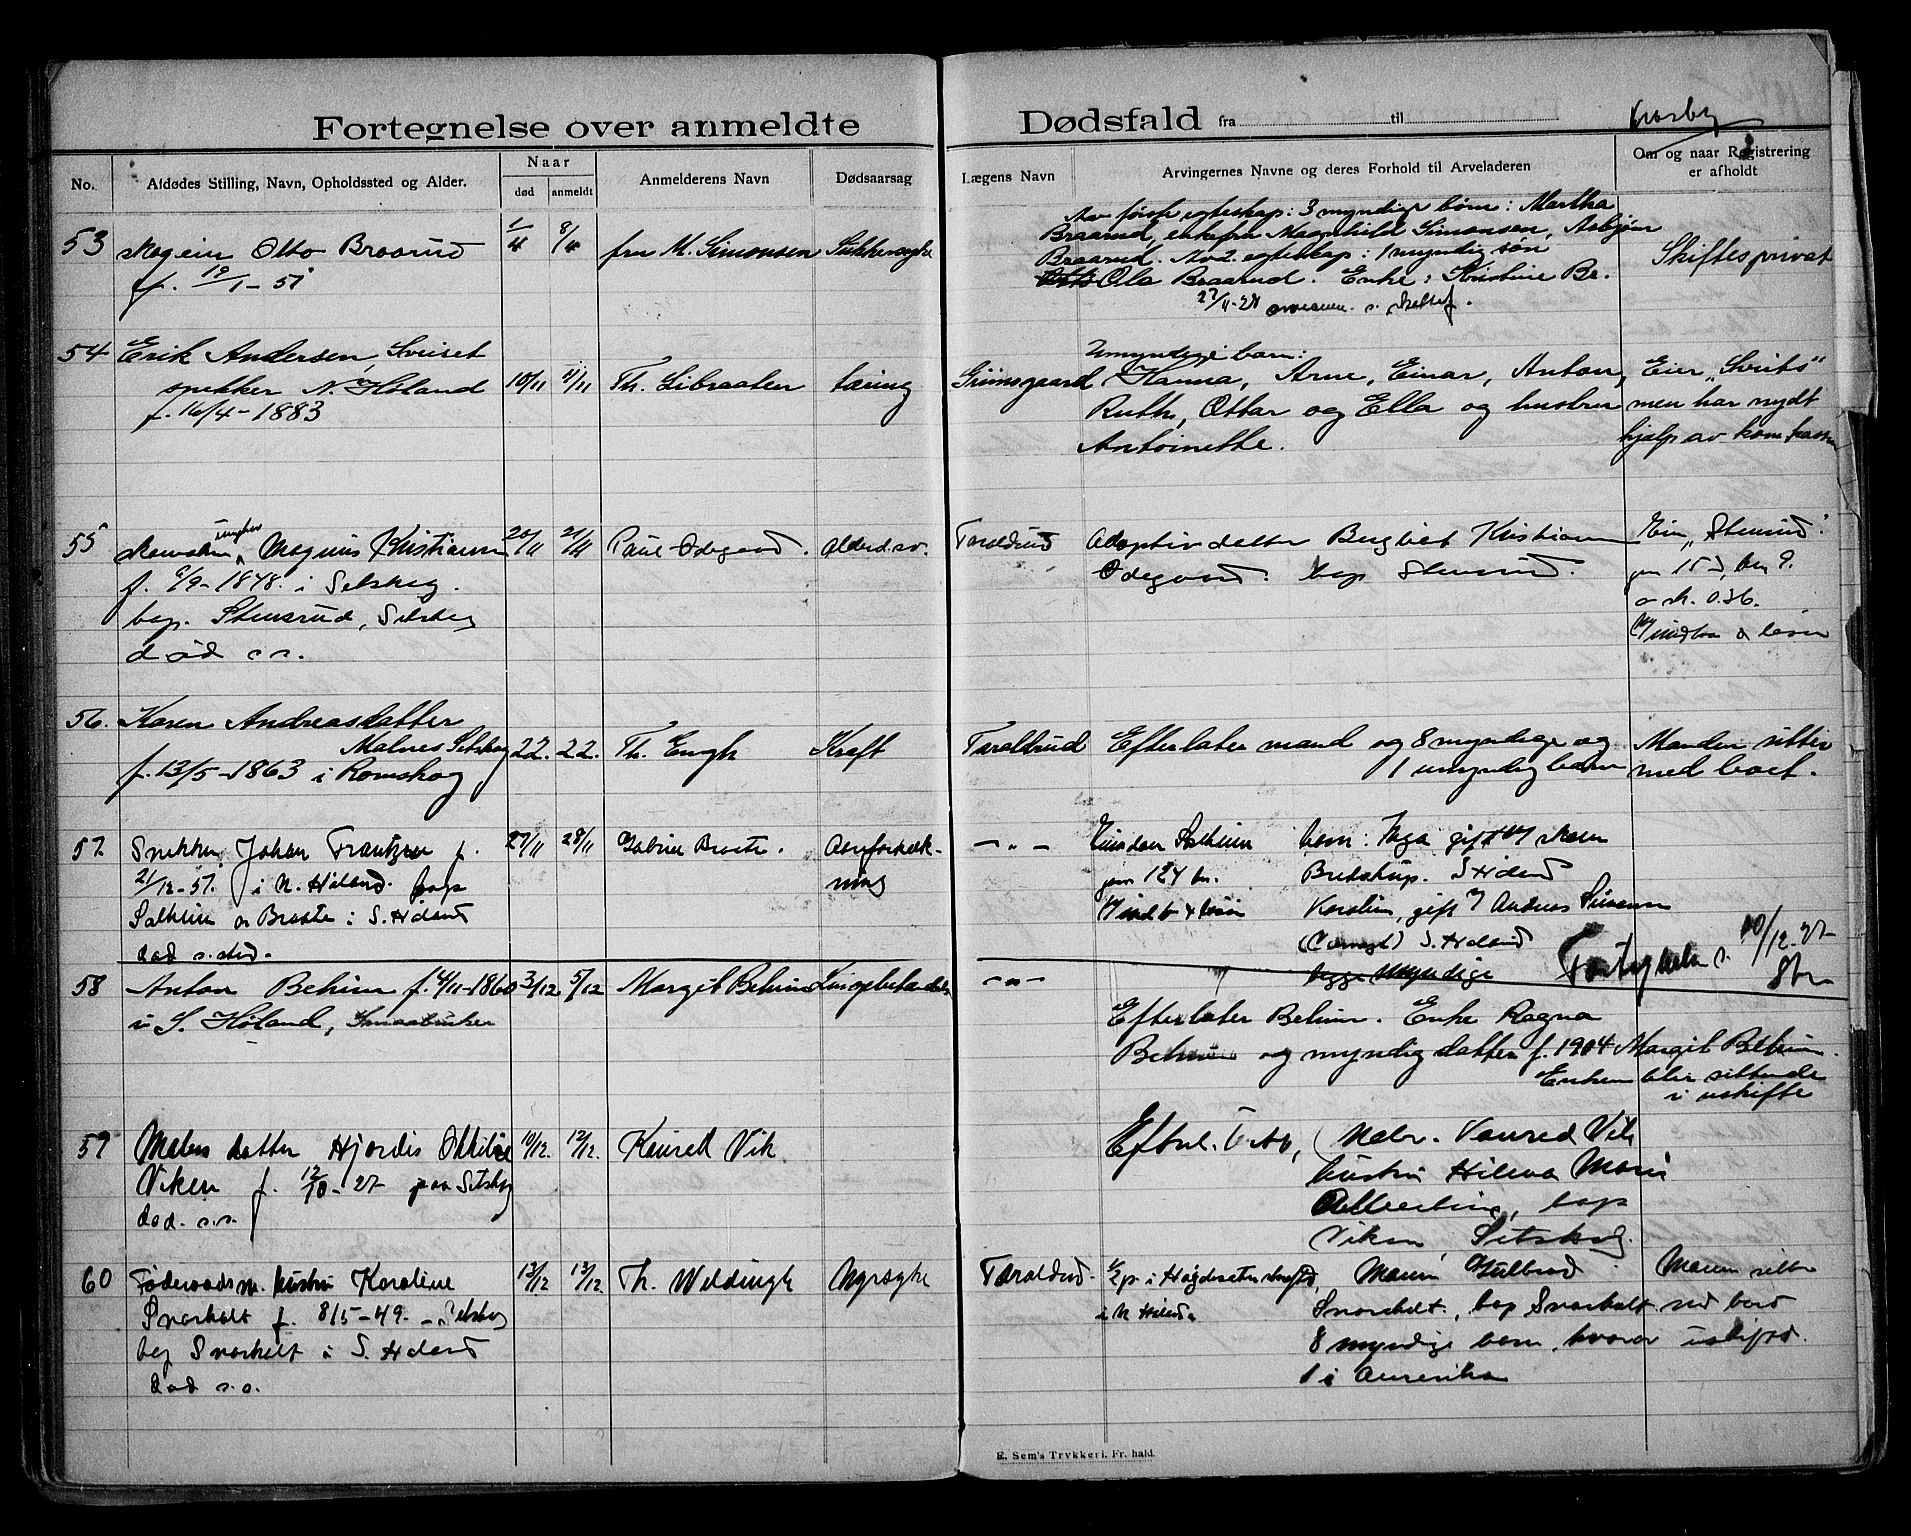 Fortegnelse over anmeldte Dødsfald fra til
No.
Afdødes Stilling, Navn, Opholdssted og Alder.
Naar
død
anmeldt
Anmelderens Navn
Dødsaarsag
Lægens Navn
Arvingernes Navne og deres Forhold til Arveladeren
Om og naar Registrering
er afholdt
53
Otto Braarud
f. 19/1-51
1/11
8/11
fru M. Simonsen
Sukkersyke
Av første egteskap: 3 myndige børn: Martha
Braarud, enkefru Magnhild Simonsen, Asbjørn
Braarud. Av 2. egteskap: 1 myndig søn
Ola Braarud. Enke: Kristine Br.
Skiftes privat
54
Erik Andersen, Sveiset
snekker N. Høland
f. 16/4-1883
10/11
11/11
Th. Libraaten
tæring
Grimsgaard
Umyndige barn:
Hanna, Arne, Einar, Anton,
Ruth, Ottar og Ella og hustru
Antoinette.
Eier "Svits"
men har nydt
hjælp av kom.kassen
55
ungkar
Magnus Kristiansen
f. 6/9-1848. i Setskog.
bop. Stensrud, Setskog
død s.s.
20/11
21/11
Paul Ødegaard.
Alderd.sv.
Taraldrud
Adoptivdatter Bergliot Kristiansen
Ødegaard. bop Stensrud.
Eier "Stensrud"
gm 15, bn 9.
a sk. 0.36.
m/ indbo & løsøre
56.
Karen Andreasdatter
Malnes Setskog
f. 13/5-1863 i Rømskog
22.
22.
Th. Engh
Kræft
Taraldrud
Efterlater mand og 8 myndige og
1 umyndig barn
Manden sitter
med boet.
57
Snekker Johan Frantzen f.
21/12-51. i N. Høland. bop
Solheim av Braate i S. Høland
død s.sted.
27/11
28/11
Gabriel Braate.
Aareforkalk-
ning
- " -
Eiendom Solheim
gm 124 bn.
m/ indbo & løsøre
barn: Inga gift m/
Bredstrup. S. Høland
Karoline, gift m/ Andreas Simensen
S. Høland
begge myndige
10/12-27
58
Anton Behim f. 4/11-1860
i S. Høland, Smaabruker
3/12
5/12
Margit Behim
Lungebetændelse
- " -
Efterlater Behim. Enke Ragna
Behim og myndig datter f. 1904 Margit Behim.
Enken blir sittende
i uskifte
59
Malers datter Hjørdis Ottilie
Viken f. 12/10-27 paa Setskog
død. s.s.
10/12.
12/12.
Konrad Vik
Efterl.
Maler. Konrad Vik
hustru Hilma Marie
Albertine, bop
Viken, Setskog.
60
Føderaadsm. hustru Karoline
Svarholt f. 8/5-49. Setskog
bop Svarholt i S. Høland
død s.s.
13/12
13/12
Th. Weldingh
Nyresyke
Taraldrud.
i N. Høland
Manden Gulbrand
Svarholt. bop Svarholt
8 myndige barn, hvorav
1 i Amerika
Manden sitter
ved boet
uskiftet.
E. Sem's Trykkeri, Fr. hald.